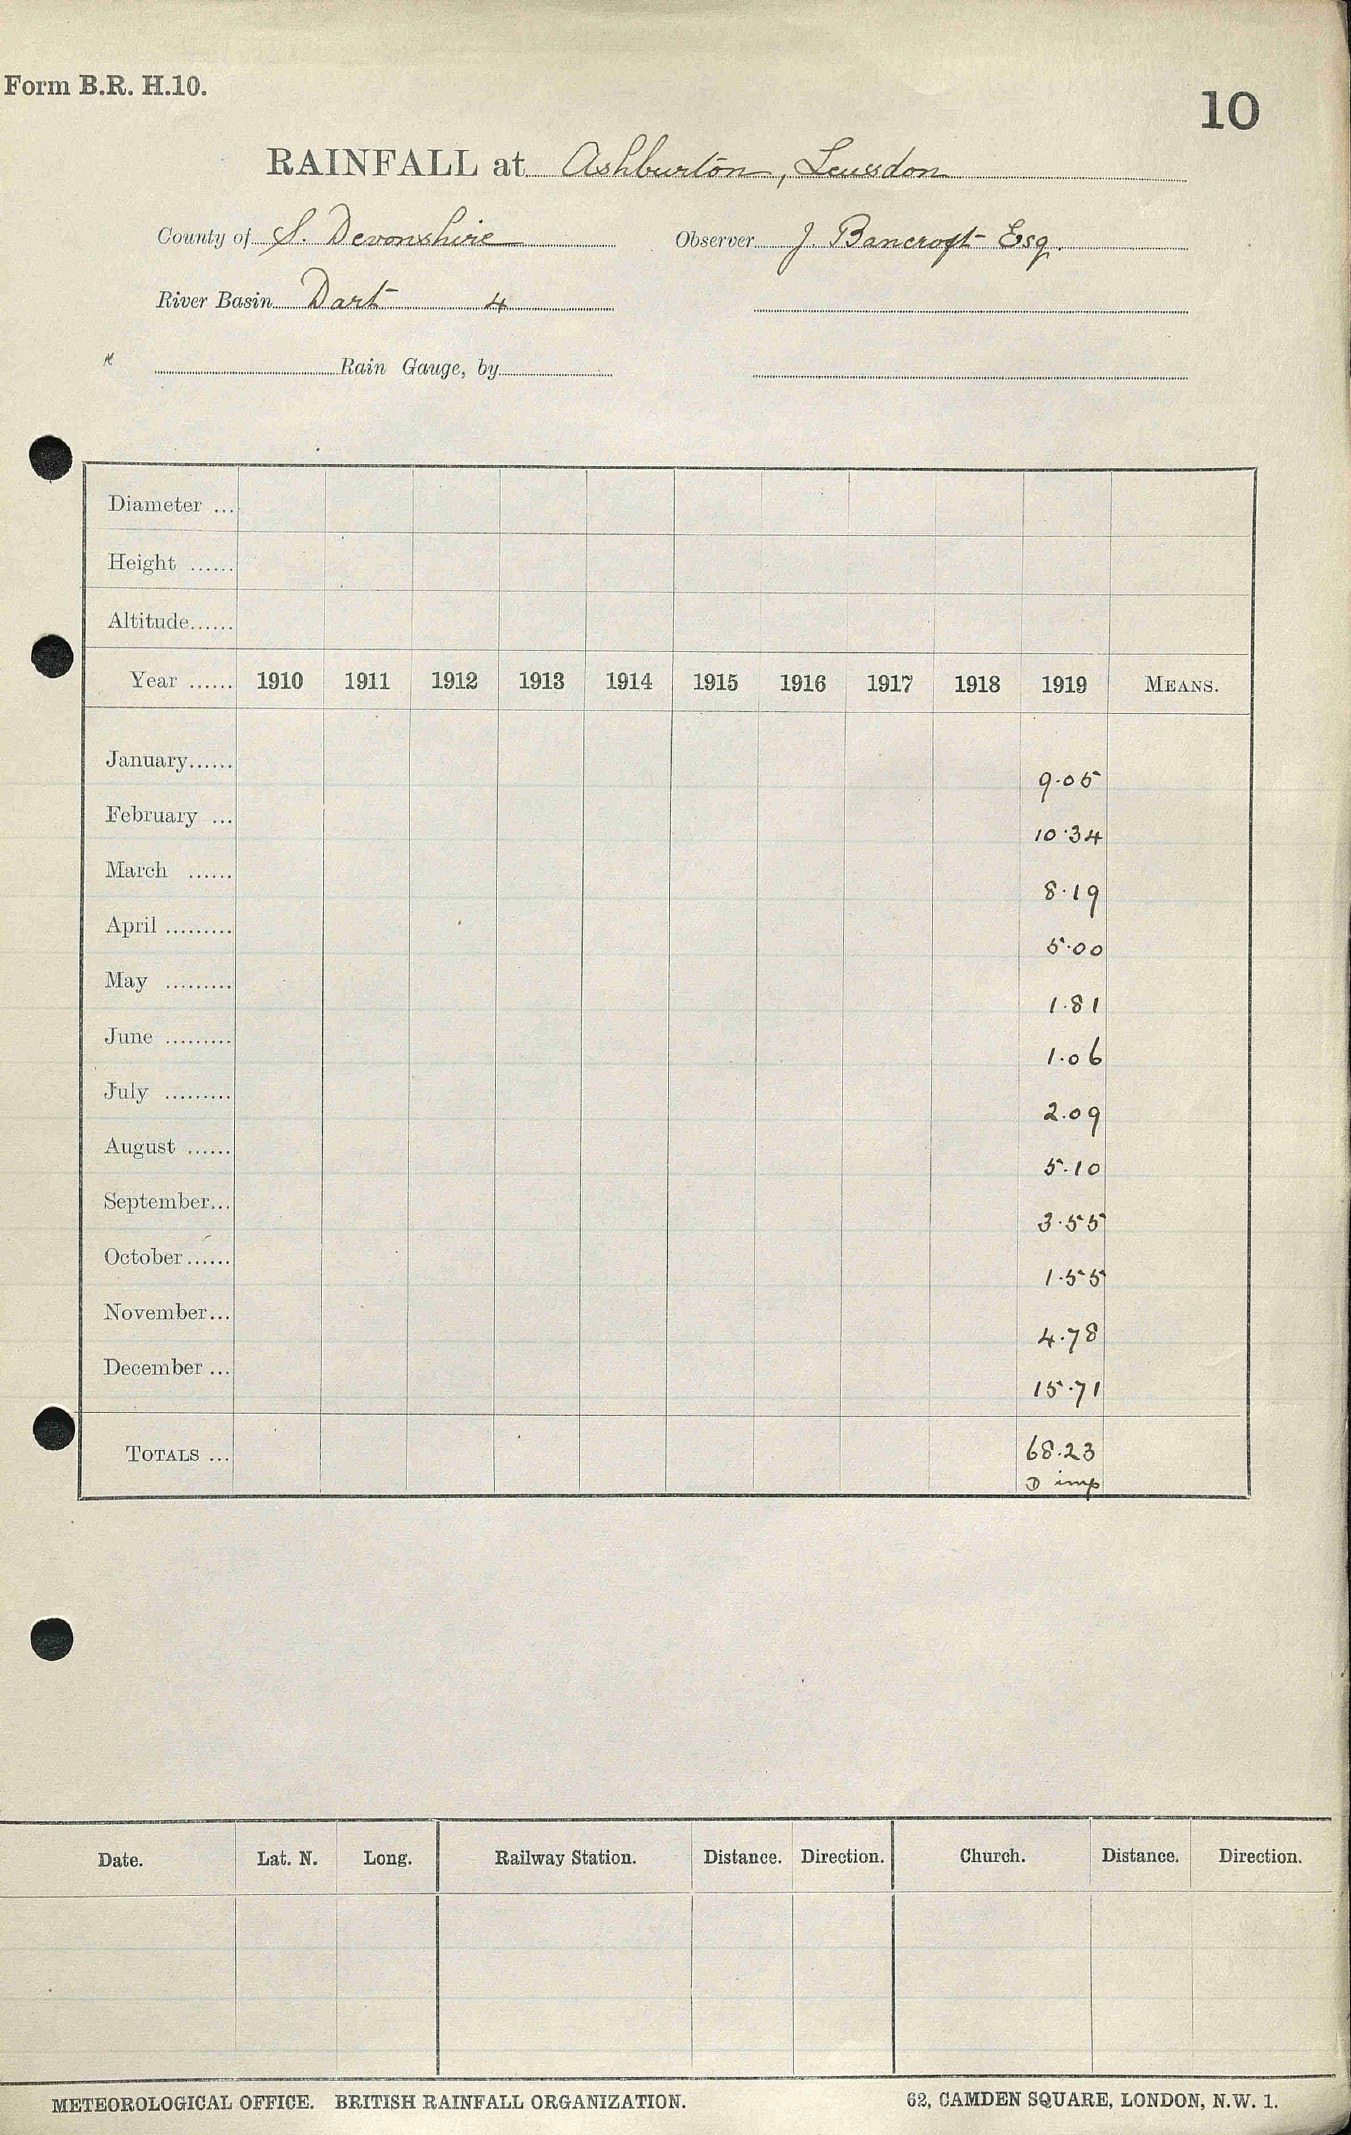 Form B.R. H.10.
10
RAINFALL at Ashburton, Leusdon
County of S. Devonshire Observer J. Bancroft Esq.
River Basin Dart 4
Rain Gauge, by
Diameter ...
Height ......
Altitude......
Year ...... 1910 1911 1912 1913 1914 1915 1916 1917 1918 1919 MEANS.
January...... 9.05
February ... 10.34
March ...... 8.19
April ......... 5.00
May ......... 1.81
June ......... 1.06
July ......... 2.09
August ...... 5.10
September... 3.55
October...... 1.55
November... 4.78
December ... 15.71
TOTALS ... 68.23
D imp
Date. Lat. N. Long. Railway Station. Distance. Direction. Church. Distance. Direction.
METEOROLOGICAL OFFICE. BRITISH RAINFALL ORGANIZATION. 62, CAMDEN SQUARE, LONDON, N.W. 1.